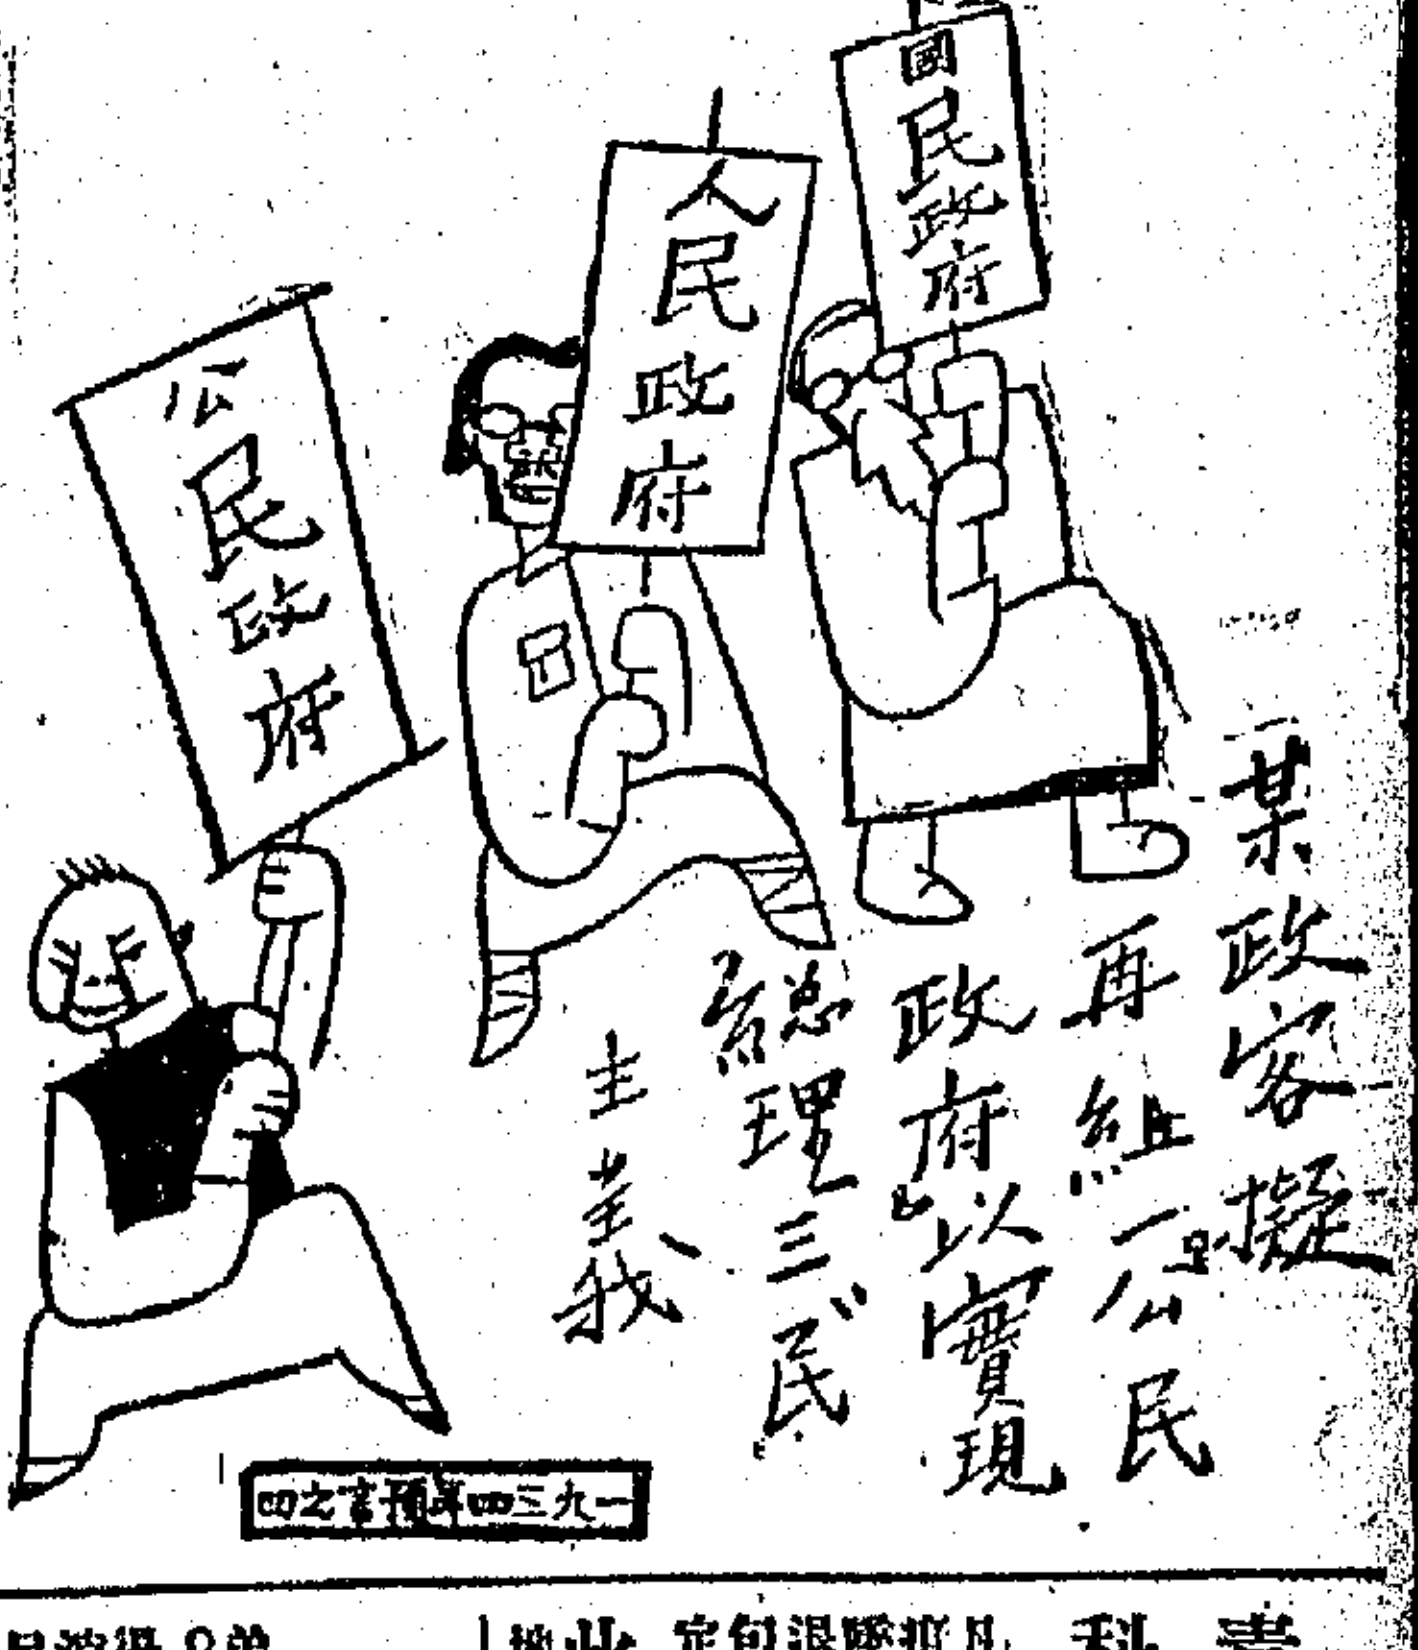 國民政府
人民政府
公民政府
某政客擬
再組一公民
政府以實現
總理三民
主主義
一九三四年預言之四